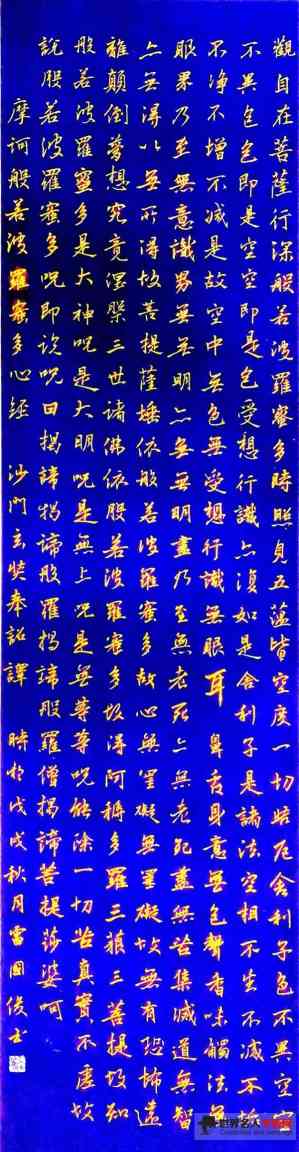 觀自在菩薩行深般若波羅蜜多時照見五蘊皆空度一切苦厄舍利子色不異空空
不異色色即是空空即是色受想行識亦復如是舍利子是諸法空相不生不滅不垢
不淨不增不減是故空中無色無受想行識無眼耳鼻舌身意無色聲香味觸法無
眼界乃至無意識界無無明亦無無明盡乃至無老死亦無老死盡無苦集滅道無智
亦無得以無所得故菩提薩埵依般若波羅蜜多故心無罣礙無罣礙故無有恐怖遠
離顛倒夢想究竟涅槃三世諸佛依般若波羅蜜多故得阿耨多羅三藐三菩提故知
般若波羅蜜多是大神呪是大明呪是無上呪是無等等呪能除一切苦真實不虛故
說般若波羅蜜多呪即說呪曰揭諦揭諦般羅揭諦般羅僧揭諦菩提薩婆呵
摩訶般若波羅蜜多心經 沙門玄奘奉詔譯 時於戊戌秋月雷國俊書
世界名人